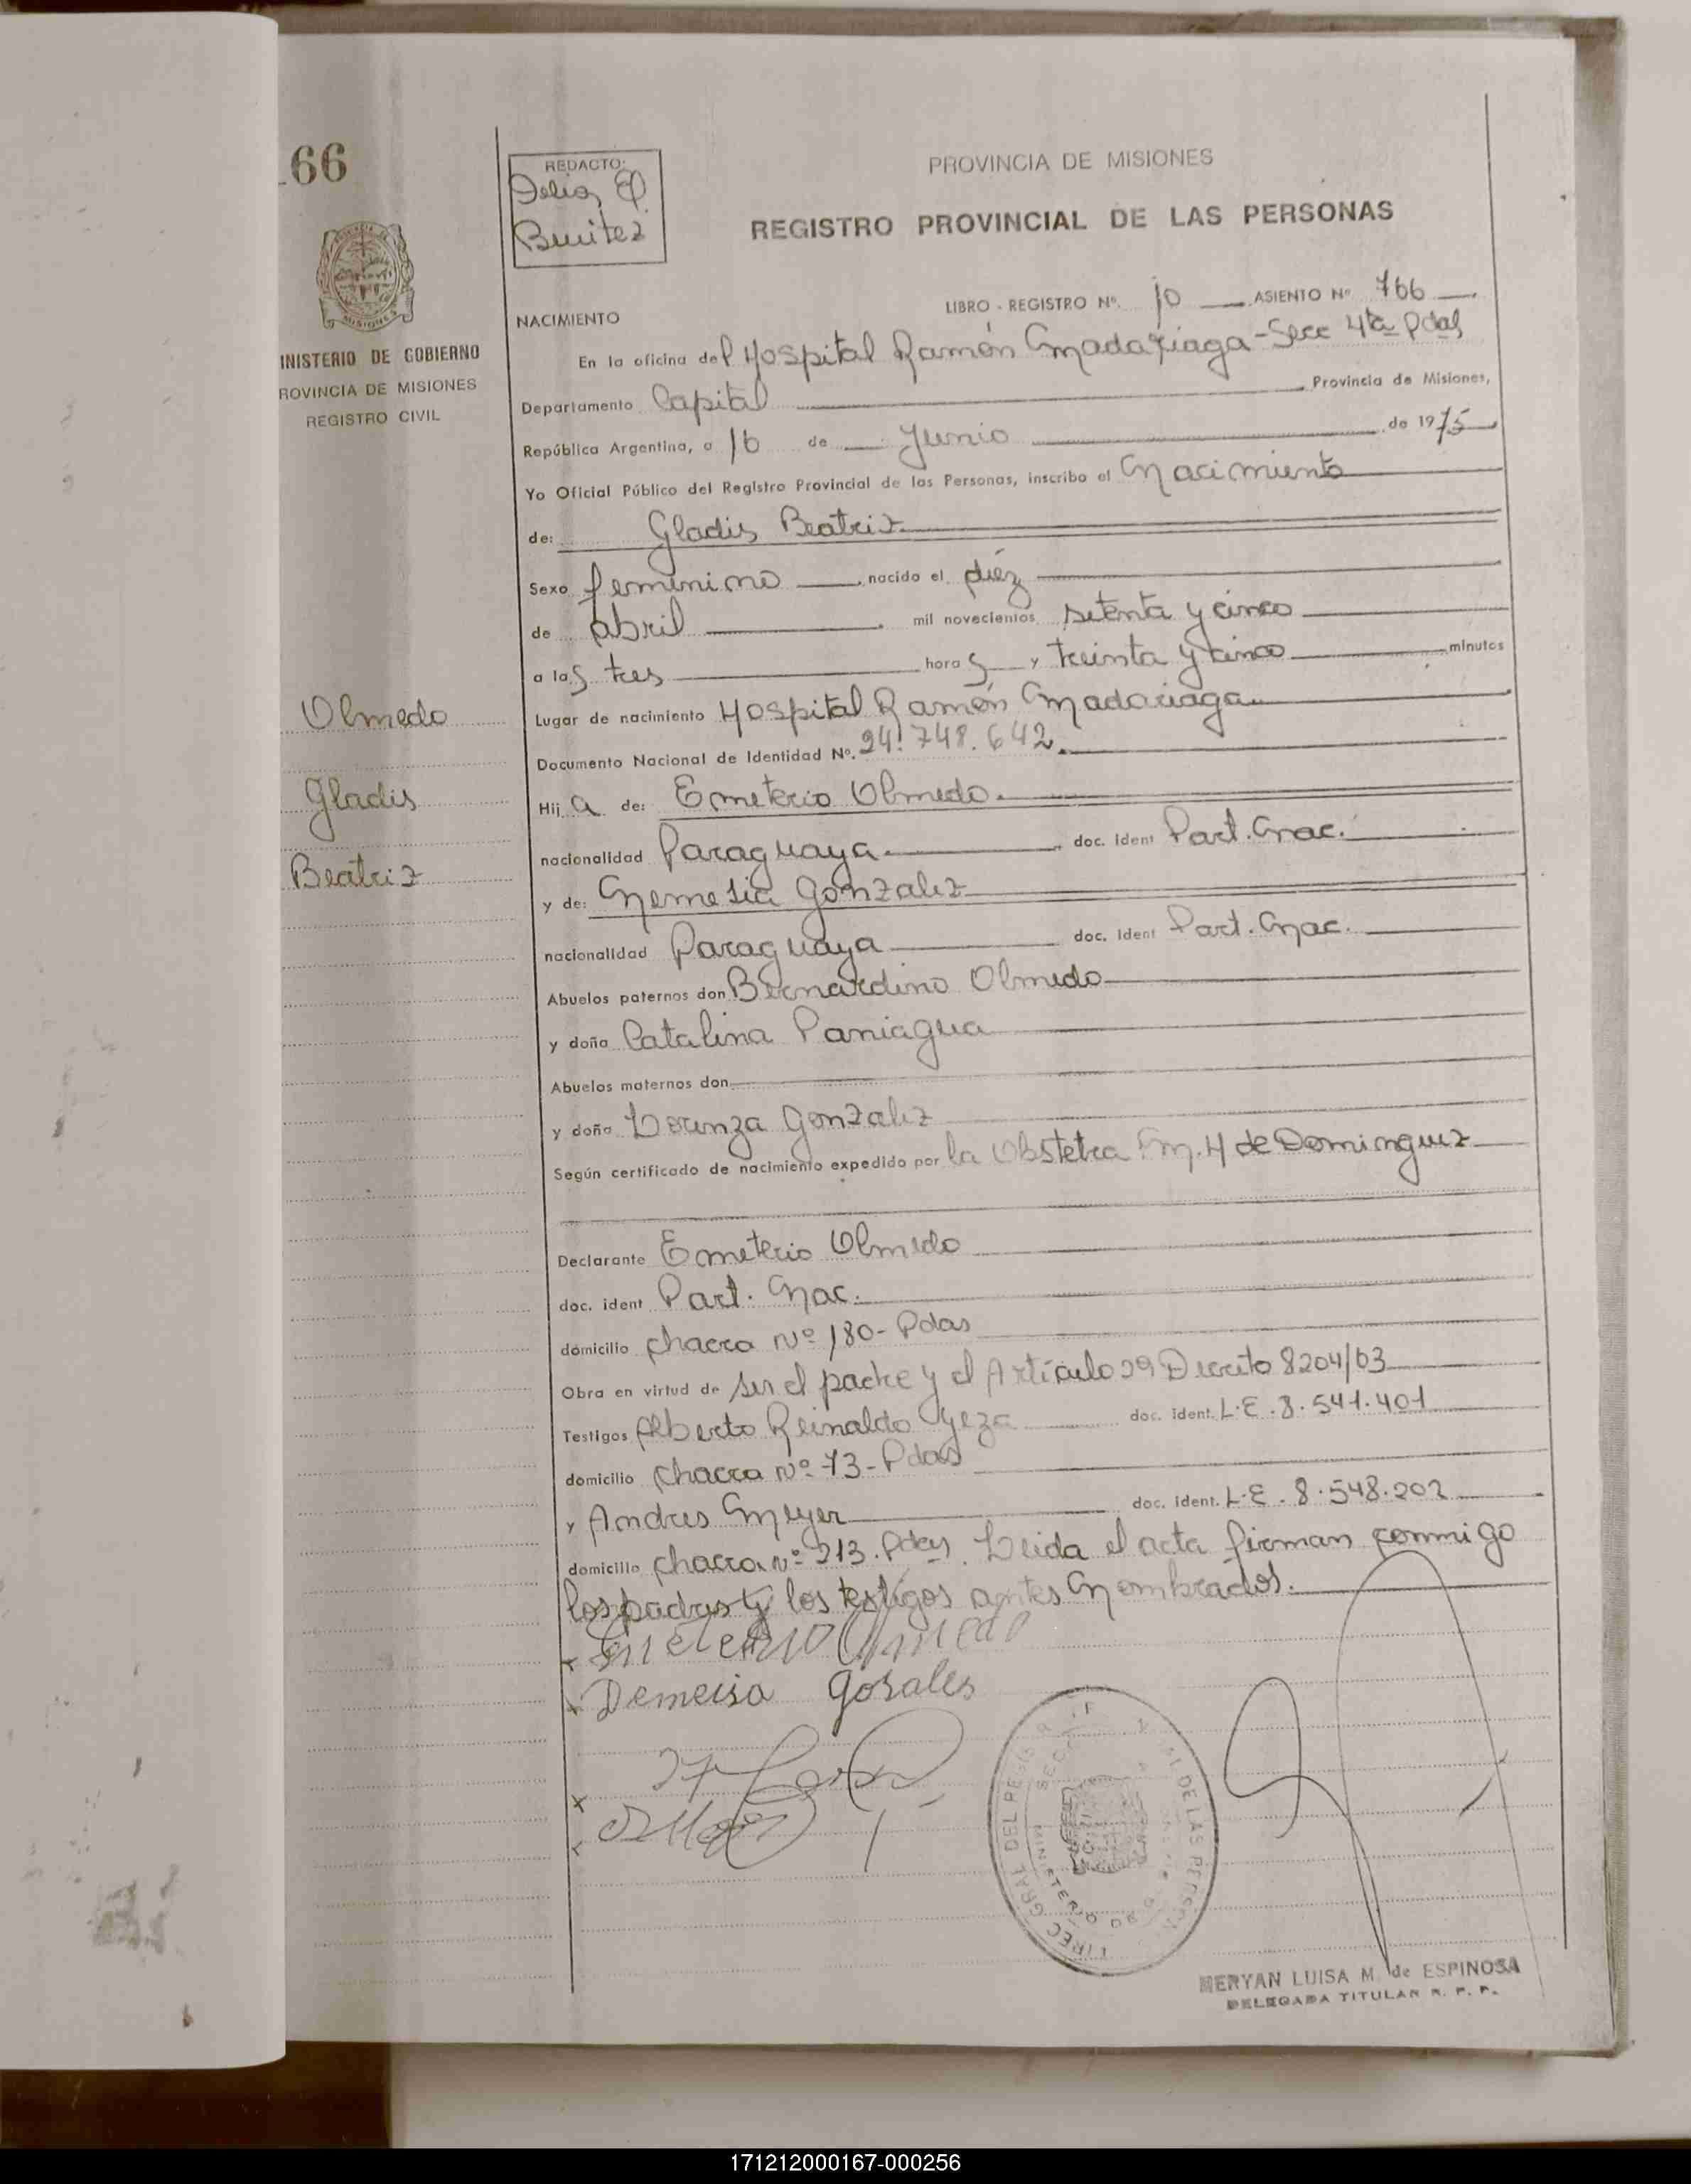 66
REDACTO:
Delia E.
Benitez
PROVINCIA DE MISIONES
REGISTRO PROVINCIAL DE LAS PERSONAS
INISTERIO DE GOBIERNO
ROVINCIA DE MISIONES
REGISTRO CIVIL
LIBRO - REGISTRO Nº. 10 ASIENTO Nº 766
NACIMIENTO
En la oficina del Hospital Ramón Madariaga - Secc 4ta Pdas
Departamento Capital Provincia de Misiones,
República Argentina, a 16 de Junio de 1975
Yo Oficial Público del Registro Provincial de las Personas, inscribo el Nacimiento
de: Gladis Beatriz
Sexo femenino nacido el diéz
de abril mil novecientos setenta y cinco
a las tres horas y treinta y cinco minutos
Lugar de nacimiento Hospital Ramón Madariaga
Documento Nacional de Identidad Nº. 24.748.642.
Olmedo
Gladis
Beatriz
Hija de: Emeterio Olmedo.
nacionalidad Paraguaya. doc. ident Part. Nac.
y de: Nemesia Gonzalez
nacionalidad Paraguaya doc. ident Part. Nac.
Abuelos paternos don Bernardino Olmedo
y doña Catalina Paniagua
Abuelos maternos don
y doña Lorenza Gonzalez
Según certificado de nacimiento expedido por la Obstetra M. H de Dominguez
Declarante Emeterio Olmedo
doc. ident Part. Nac.
domicilio chacra Nº 180 - Pdas
Obra en virtud de ser el padre y el Artículo 29 Decreto 8204/63
Testigos Alberto Reinaldo Yeza doc. ident. L.E. 8.541.401
domicilio chacra Nº 73 - Pdas
y Andres Meyer doc. ident. L.E. 8.548.202
domicilio chacra Nº 213. Pdas. Leida el acta firman conmigo
los padres y los testigos antes Nombrados.
Emeterio Olmedo
Demeisa Gosales
DIREC GRAL DEL REGIS DE LAS PERSON
MINISTERIO DE
MERYAN LUISA M. de ESPINOSA
DELEGADA TITULAR R. P. P.
171212000167-000256